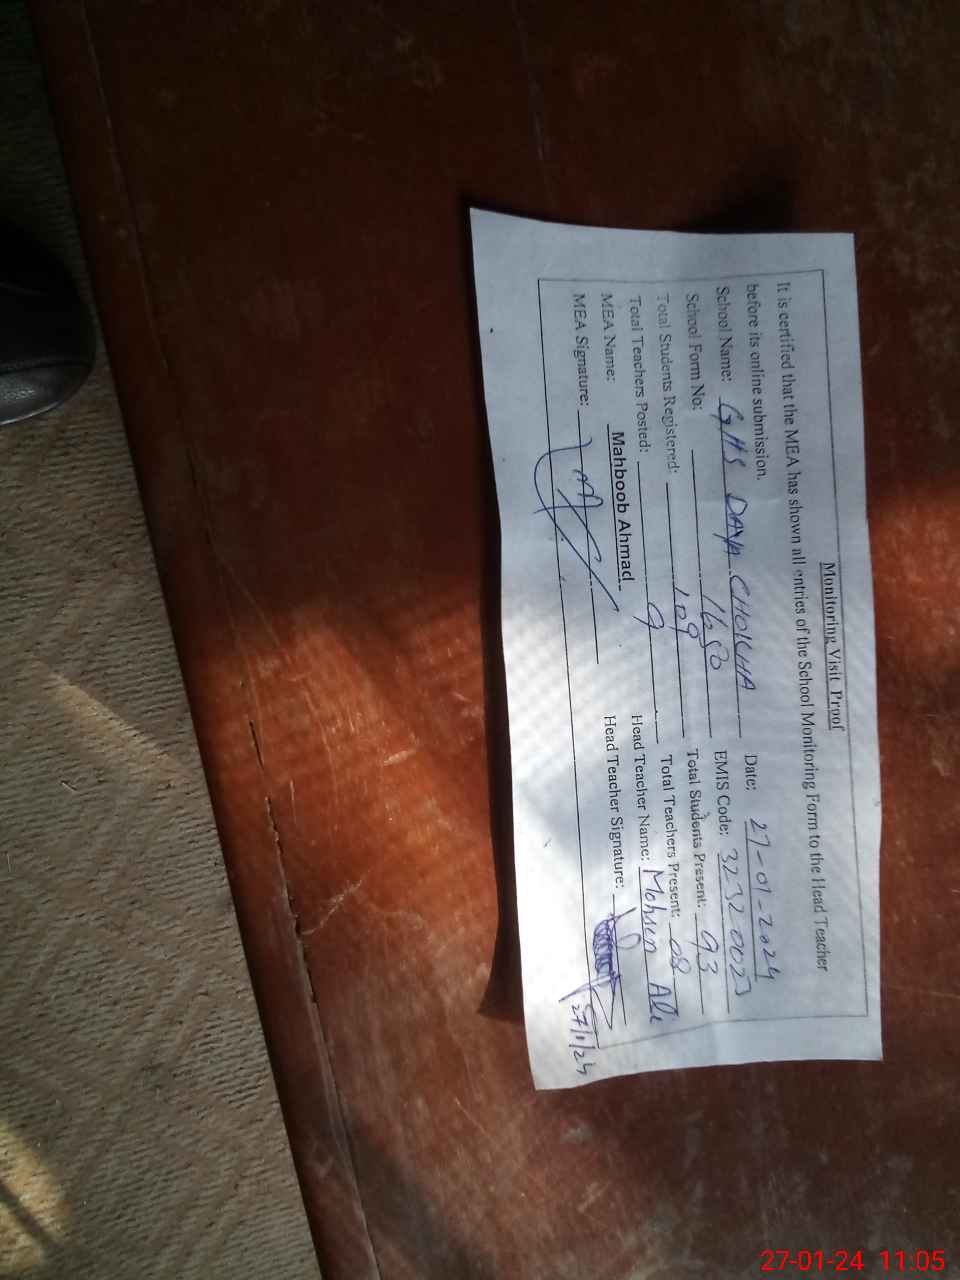 Monitoring Visit Proof
It is certified that the MEA has shown all entries of the School Monitoring Form to the Head Teacher
before its online submission.
School Name: GHS DAYA CHOKHA Date: 27-01-2024
School Form No: 1650 EMIS Code: 32320023
Total Students Registered: 109 Total Students Present: 93
Total Teachers Posted: 9 Total Teachers Present: 08
MEA Name: Mahboob Ahmad Head Teacher Name: Mohsin Ali
MEA Signature: Head Teacher Signature:
27/1/24
27-01-24 11:05